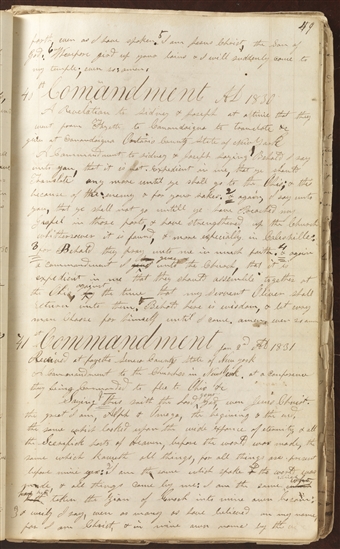 49
partly, even as I have spoken. I am Jesus Christ, the Son of
God, Wherefore gird up your loins & I will suddenly come to
my temple; even so amen.
40th Comandment AD 1830
A Revelation to Sidney & Joseph at a time that they
went from Fayette, to Canandaigua to translate &c
given at Canandaigua Ontario County State of New York
A Commandment to Sidney & Joseph saying Behold I say
unto you, that it is not expedient in me, that ye should
translate any more until ye shall go to the Ohio, & this
because of the enemy & for your sakes. 2 & again, I say unto
you, that ye shall not go untill ye have Preached my
Gospel in those parts, & have strengthened up the Church
whithersoever it is found, & more especially in Colesville:
3 For Behold they pray unto me in much faith. 4 & again
a commandment I give unto the Church, that it is
expedient in me that they should assemble together at
the Ohio, against the time that my Servent Oliver shall
return unto them. Behold here is wisdom, & let every
man choose for himself until I come, amen even so
41st Commandment Jan 2d AD 1831
Received at Fayette Seneca County State of New York
A Commandment to the Churches in New York, at a conference
they being Commanded to flee to Ohio &c
Saying Thus saith the Lord your God even Jesus Christ
the great I am, Alpha & Omega, the beginning & the end,
the same which looked upon the wide expanse of eternity, & all
the Seraphick hosts of Heaven, before the world was made, the
same which knoweth all things, for all things are present
before mine eyes: I am the same which spake & the world was
made & all things came by me: I am the same which
have taken the Zion of Enoch into mine own bosom:
& verily I say even as many as have believed on my name
for I am Christ, & in mine own name by the